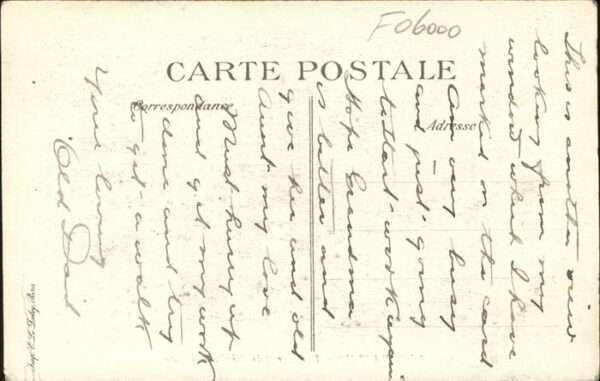 F06000
CARTE POSTALE
Correspondance
Adresse
This is another view
looking from my
window which I have
marked on the card
Am very busy
and just going
to start work again
Hope Grandma
is better and
give her and old
Aunt my love
Must hurry up
and get my work
done and try
to get a walk
Your loving
Old Dad